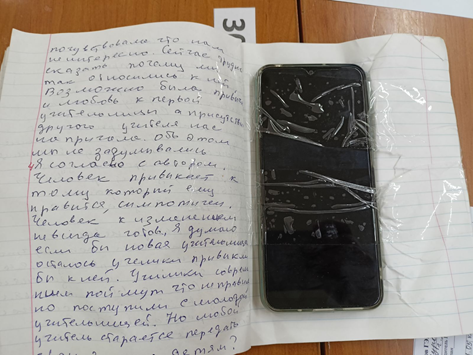 30
почувствовала что нам
не интересно. Сейчас трудно
сказать почему мы
так относились к ней.
Возможно была привыч
и любовь к первой
учительнице, а присутств
другого учителя нас
не пугала. Обо этом
мы не задумывались
Я согласна с автором.
Человек привыкает к
тому, который ему
нравится, симпатичен.
Человек к изменениям
не всегда готов. Я думаю
если бы новая учительница
осталось ученики привыкли
бы к ней. Ученики
поймут что не прави
но поступили с молодой
учительницей. Но любой
учитель старается передать
детям?